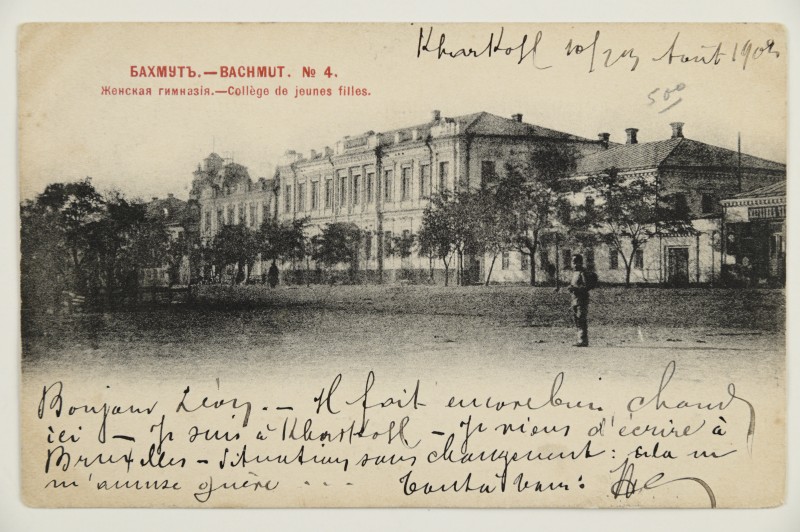 Kharkoff 10/23 Août 190
БАХМУТЪ.—BACHMUT. № 4.
Женская гимназія.—Collège de jeunes filles.
500
Bonjour Léon. — Il fait encore bien chaud
ici — Je suis à Kharkoff — Je viens d'écrire à
Bruxelles — Situation sans changement : cela ne
m'amuse guère ...